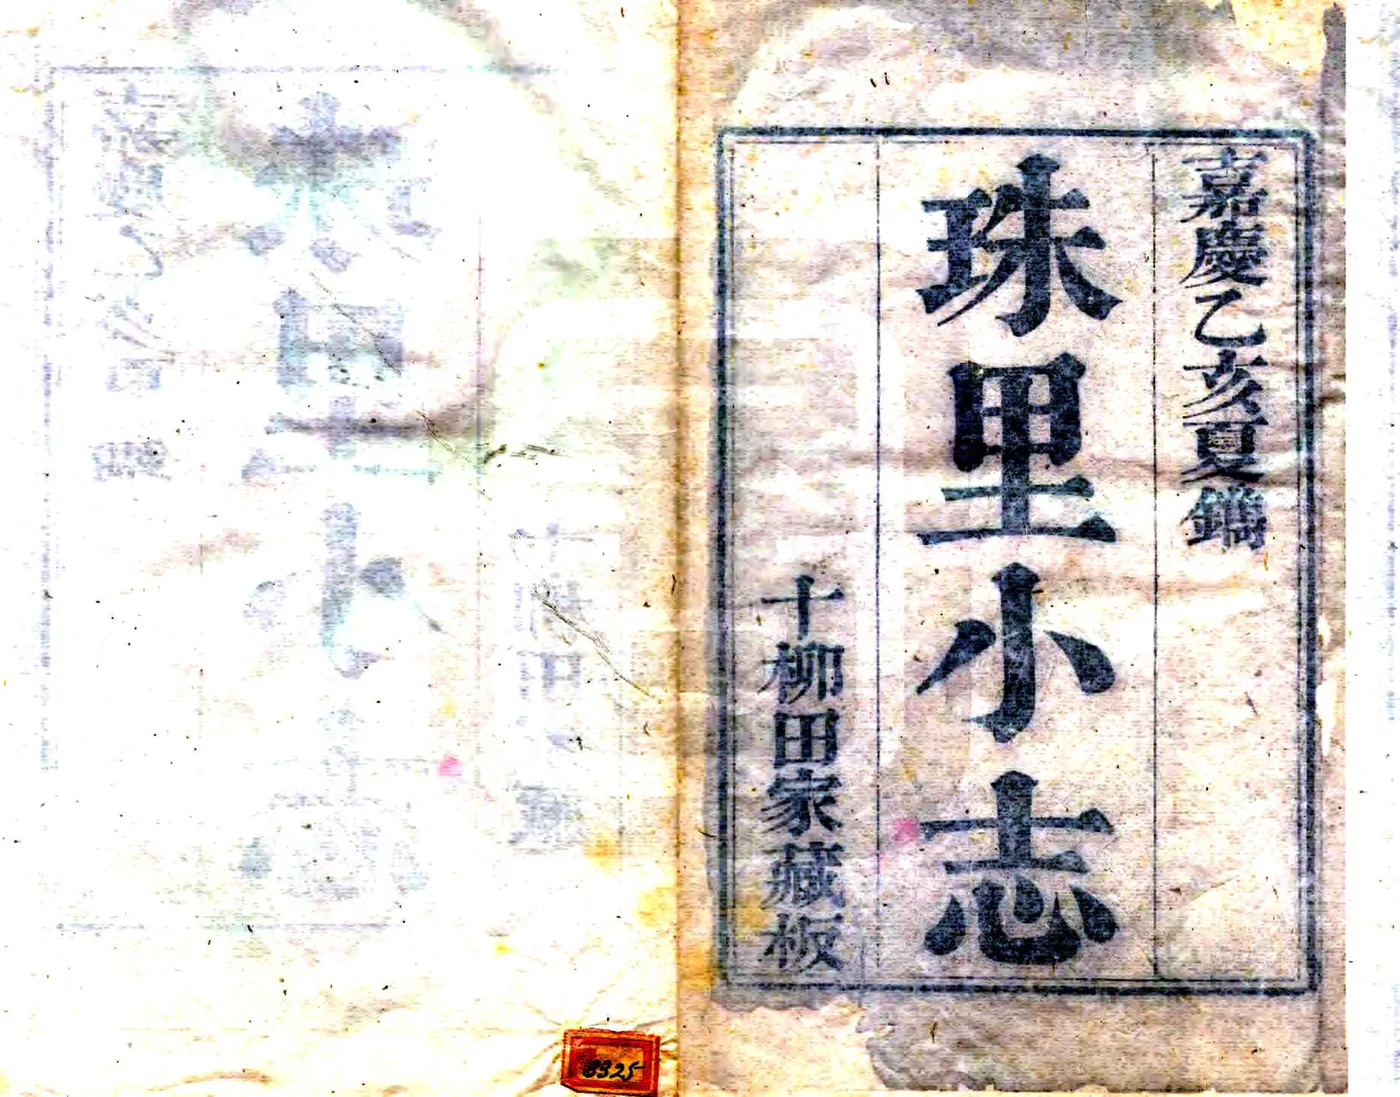 嘉慶乙亥夏鐫
珠里小志
十柳田家藏板
8325